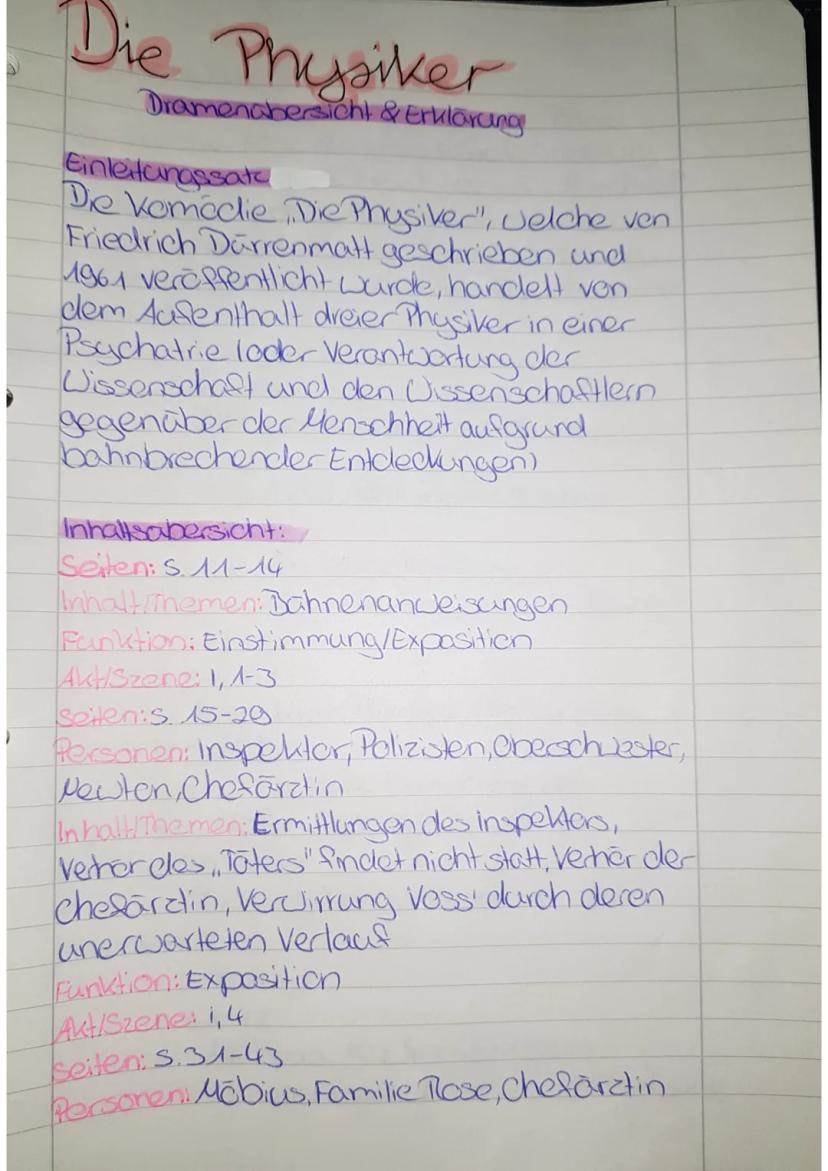 Die Physiker
Dramenübersicht & Erklärung
Einleitungssatz
Die Komödie „Die Physiker", welche von
Friedrich Dürrenmatt geschrieben und
1961 veröffentlicht wurde, handelt von
dem Aufenthalt dreier Physiker in einer
Psychatrie (oder Verantwortung der
Wissenschaft und den Wissenschaftlern
gegenüber der Menschheit aufgrund
bahnbrechender Entdeckungen)
Inhaltsübersicht:
Seiten: S. 11-14
Inhalt/Themen: Bühnenanweisungen
Funktion: Einstimmung/Exposition
Akt/Szene: I, 1-3
Seiten: S. 15-29
Personen: Inspektor, Polizisten, Oberschwester,
Newton, Chefärztin
Inhalt/Themen: Ermittlungen des inspektors,
Verhör des „Täters" findet nicht statt, Verhör der
Chefärztin, Verwirrung Voss' durch deren
unerwarteten Verlauf
Funktion: Exposition
Akt/Szene: i, 4
Seiten: S. 31-43
Personen: Möbius, Familie Rose, Chefärztin